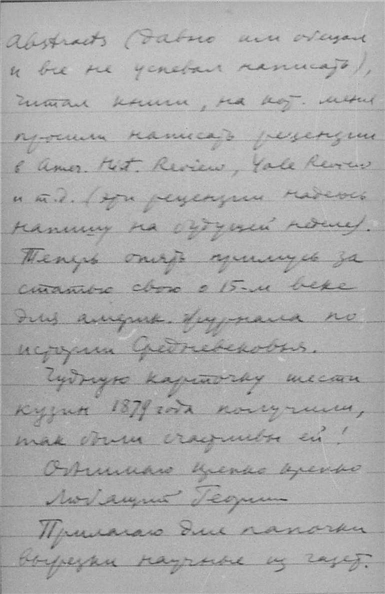 Abstracts (давно им обещал
и все не успевал написать),
читал книги, на кот. меня
просили написать рецензии
в Amer. Hist. Review, Yale Review
и т.д. (эти рецензии надеюсь
напишу на будущей неделе).
Теперь опять примусь за
статью свою о 15-м веке
для америк. журнала по
истории Средневековья.
Чудную карточку шести
кузин 1879 года получили,
так были счастливы ей!
Обнимаю крепко крепко
Любящий Георгий
Прилагаю для папочки
вырезки научные из газет.